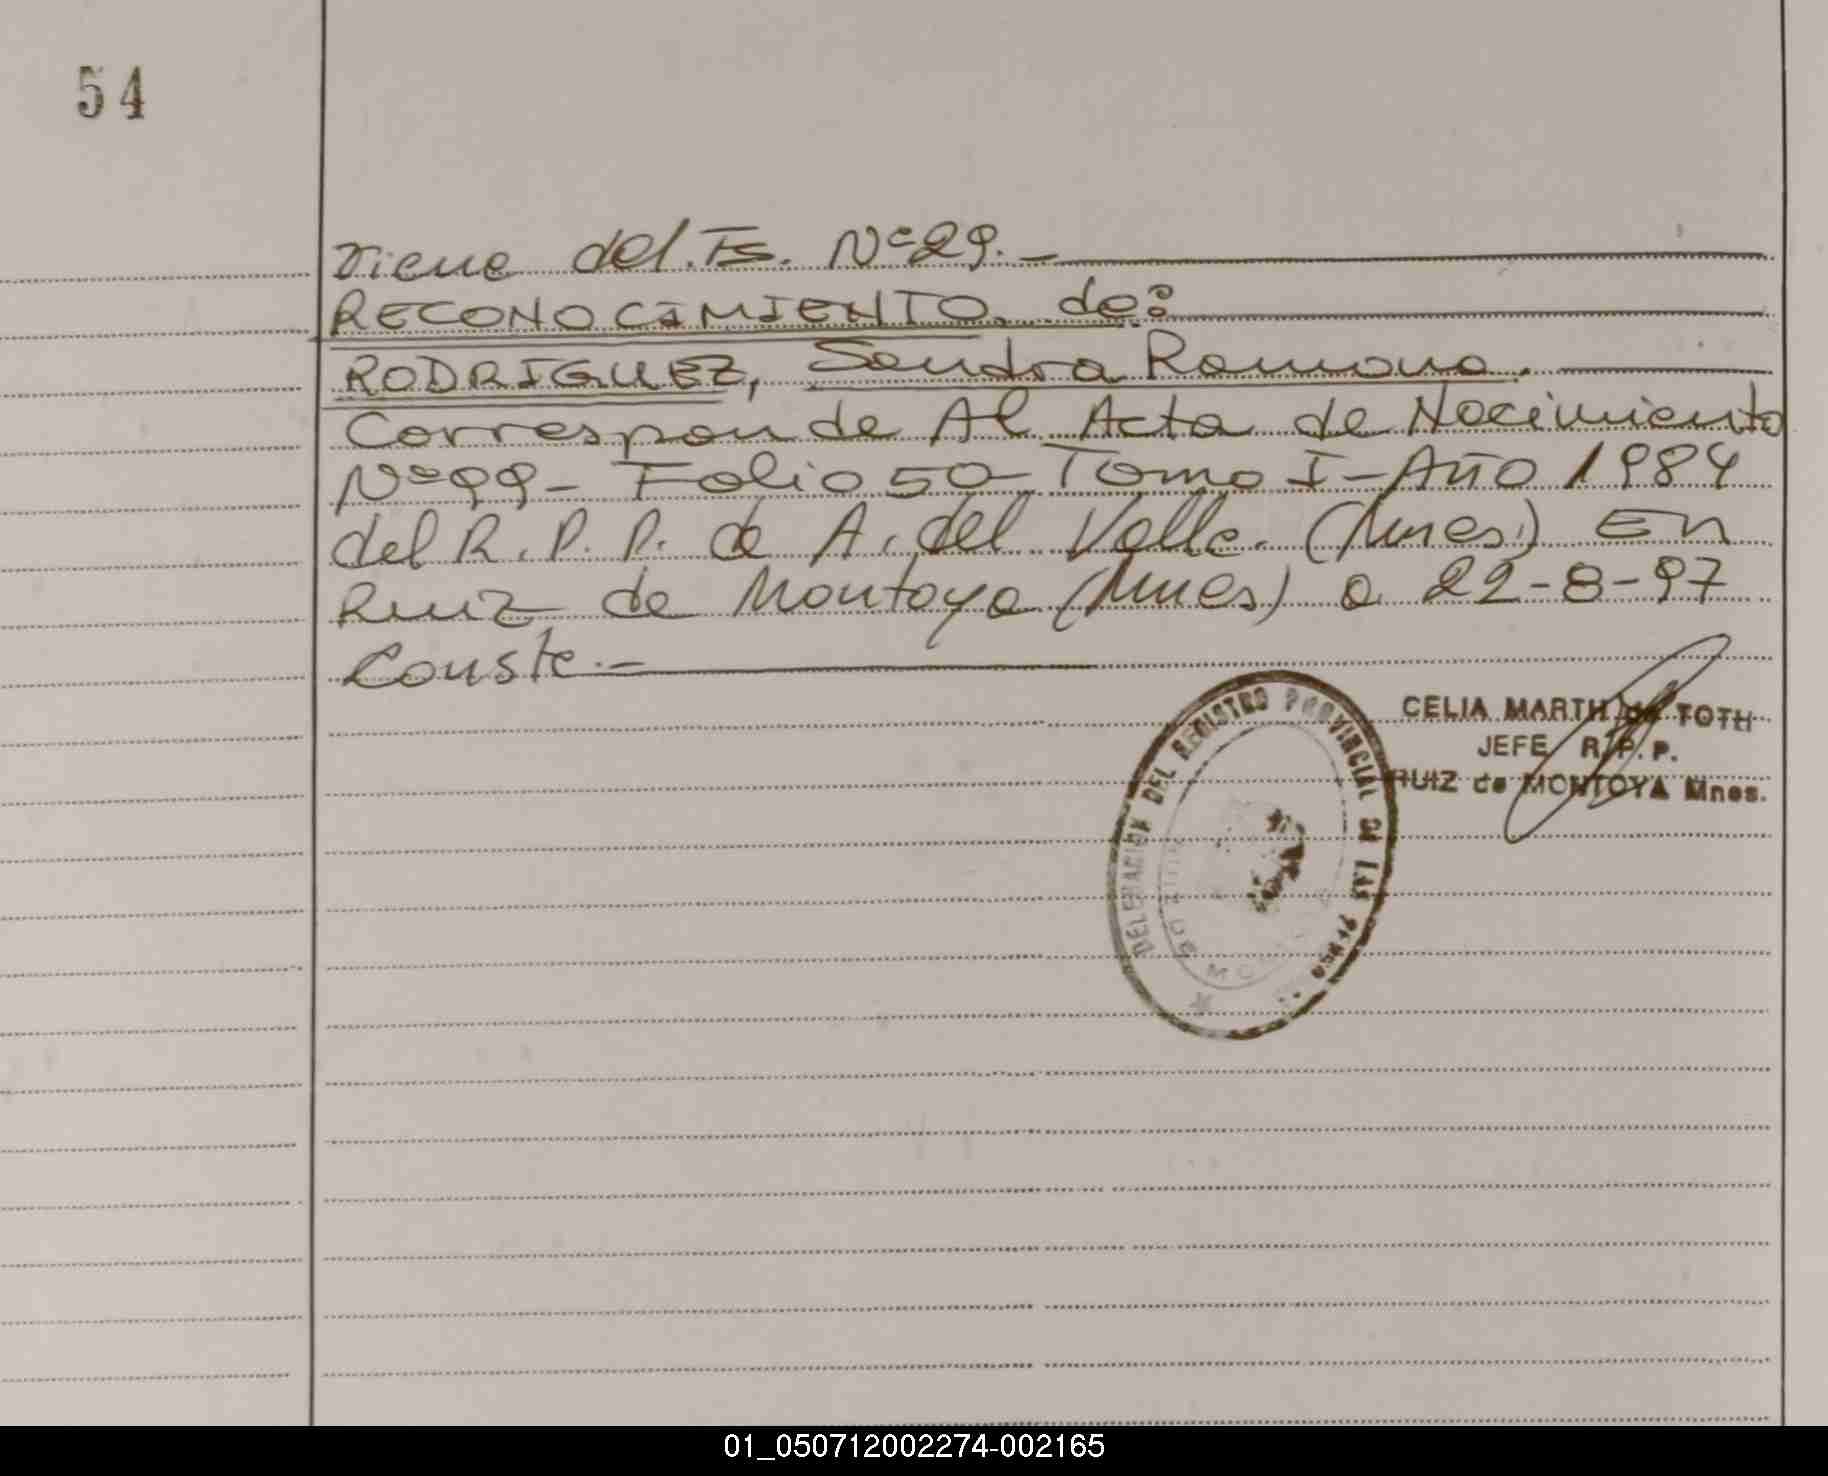 54
Viene del. Fs. Nº 29. -
RECONOCIMIENTO. de:
RODRIGUEZ, Sandra Ramona.
Corresponde Al Acta de Nacimiento
Nº 99 - Folio 50 - Tomo I - Año 1984
del R. P. P. de A. del Valle. (Mnes) En
Ruiz de Montoya (Mnes) a 22-8-97
Conste. -
CELIA MARTH de TOTH
JEFE R.P.P.
RUIZ de MONTOYA Mnes.
DELEGACION DEL REGISTRO PROVINCIAL DE LAS
01_050712002274-002165